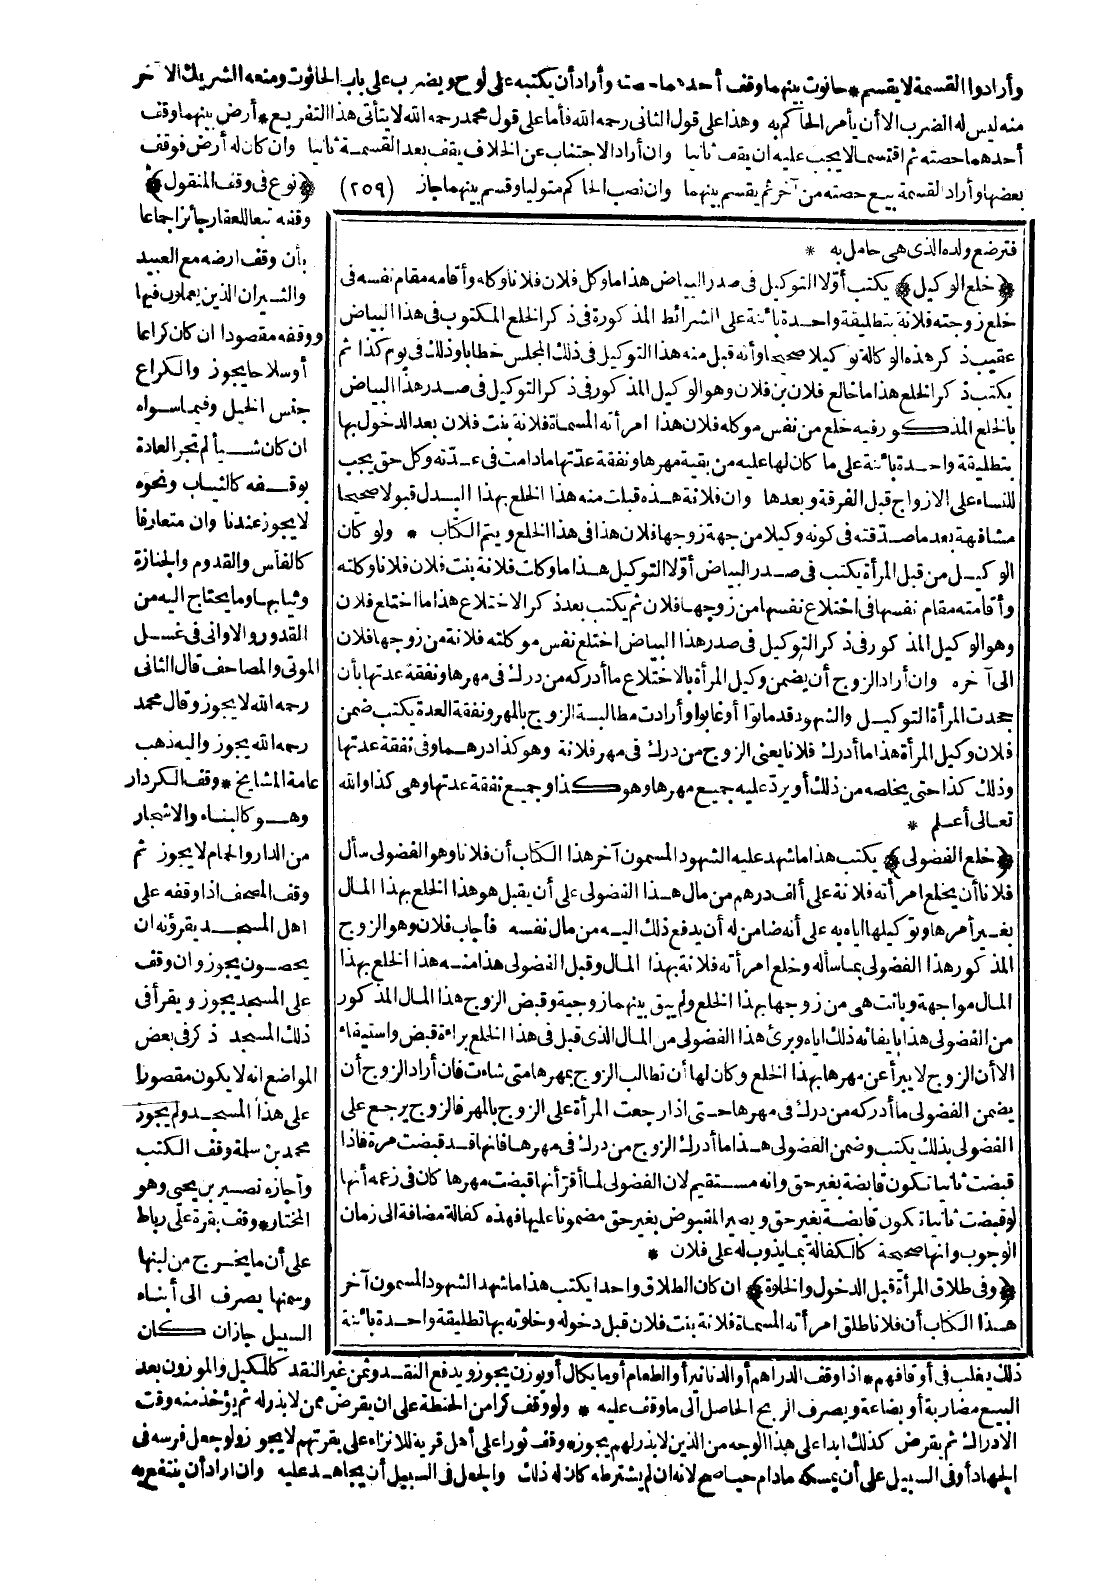 وأرادوا القسمة لا يقسم * حانوت بينهما وقف أحدهما حصته وأراد أن يكتبه على لوح ويضرب على باب الحانوت ومنعه الشريك الآخر
منه ليس له الضرب الا أن يأمر الحاكم به وهذا على قول الثانى رحمه الله فأما على قول محمد رحمه الله لا يتأتى هذا التفريع * أرض بينهما وقف
أحدهما حصته ثم اقتسما لا يجب عليه ان يقف ثانيا وان أراد الاجتناب عن الخلاف يقف بعد القسمة ثانيا وان كان له أرض فوقف
بعضها وأراد القسمة بيع حصته من آخر ثم يقسم بينهما وان نصب الحاكم متوليا وقسم بينهما جاز (٢٥٩)
﴿نوع فى وقف المنقول﴾
وقفه تبعا للعقار جائز اجماعا
بأن وقف ارضه مع العبيد
والثيران الذين يعملون فيها
ووقفه مقصودا ان كان كراعا
أو سلاحا يجوز والكراع
جنس الخيل وفيما سواه
ان كان شيأ لم تجر العادة
بوقفه كالثياب ونحوه
لا يجوز عندنا وان متعارفا
كالفأس والقدوم والجنازة
وثيابها وما يحتاج اليه من
القدور والاوانى فى غسل
الموتى والمصاحف قال الثانى
رحمه الله لا يجوز وقال محمد
رحمه الله يجوز واليه ذهب
عامة المشايخ * وقف الكردار
وهو كالبناء والاشجار
من الدار والحمام لا يجوز ثم
وقف المصحف اذا وقفه على
اهل المسجد يقرؤنه ان
يحصون يجوز وان وقف
على المسجد يجوز ويقرأ فى
ذلك المسجد ذكر فى بعض
المواضع انه لا يكون مقصورا
على هذا المسجد ولم يجوز
محمد بن سلمة وقف الكتب
وأجازه نصير بن يحيى وهو
المختار * وقف بقرة على رباط
على أن ما يخرج من لبنها
وسمنها يصرف الى أبناء
السبيل جاز ان كان
فترضع ولده الذى هى حامل به *
﴿خلع الوكيل﴾ يكتب أولا التوكيل فى صدر البياض هذا ما وكل فلان فلانا وكله وأقامه مقام نفسه فى
خلع زوجته فلانة بتطليقة واحدة بائنة على الشرائط المذكورة فى ذكر الخلع المكتوب فى هذا البياض
عقيب ذكر هذه الوكالة توكيلا صحيحا وأنه قبل منه هذا التوكيل فى ذلك المجلس خطابا وذلك فى يوم كذا ثم
يكتب ذكر الخلع هذا ما خالع فلان بن فلان وهو الوكيل المذكور فى ذكر التوكيل فى صدر هذا البياض
بالخلع المذكور فيه خلع من نفس موكله فلان هذا امرأته المسماة فلانة بنت فلان بعد الدخول بها
بتطليقة واحدة بائنة على ما كان لها عليه من بقية مهرها ونفقة عدتها ما دامت فى عدته وكل حق يجب
للنساء على الازواج قبل الفرقة وبعدها وان فلانة هذه قبلت منه هذا الخلع بهذا البدل قبولا صحيحا
مشافهة بعد ما صدقته فى كونه وكيلا من جهة زوجها فلان هذا فى هذا الخلع ويتم الكتاب * ولو كان
الوكيل من قبل المرأة يكتب فى صدر البياض أولا التوكيل هذا ما وكلت فلانة بنت فلان فلانا وكلته
وأقامته مقام نفسها فى اختلاع نفسها من زوجها فلان ثم يكتب بعد ذكر الاختلاع هذا ما اختلع فلان
وهو الوكيل المذكور فى ذكر التوكيل فى صدر هذا البياض اختلع نفس موكلته فلانة من زوجها فلان
الى آخره وان أراد الزوج أن يضمن وكيل المرأة بالاختلاع ما أدركه من درك فى مهرها ونفقة عدتها بأن
جحدت المرأة التوكيل والشهود قد ماتوا أو غابوا وأرادت مطالبة الزوج بالمهر ونفقة العدة يكتب ضمن
فلان وكيل المرأة هذا ما أدرك فلانا يعنى الزوج من درك فى مهر فلانة وهو كذا درهما وفى نفقة عدتها
وذلك كذا حتى يخلصه من ذلك أو يرد عليه جميع مهرها وهو كذا وجميع نفقة عدتها وهى كذا والله
تعالى أعلم *
﴿خلع الفضولى﴾ يكتب هذا ما شهد عليه الشهود المسمون آخر هذا الكتاب أن فلانا وهو الفضولى سأل
فلانا أن يخلع امرأته فلانة على ألف درهم من مال هذا الفضولى على أن يقبل هو هذا الخلع بهذا المال
بغير أمرها وتوكيلها اياه به على أنه ضامن له أن يدفع ذلك اليه من مال نفسه فأجاب فلان وهو الزوج
المذكور هذا الفضولى بما سأله وخلع امرأته فلانة بهذا المال وقبل الفضولى هذا منه هذا الخلع بهذا
المال مواجهة وبانت هى من زوجها بهذا الخلع ولم يبق بينهما زوجية وقبض الزوج هذا المال المذكور
من الفضولى هذا بايفائه ذلك اياه وبرئ هذا الفضولى من المال الذى قبل فى هذا الخلع براءة قبض واستيفاء
الا أن الزوج لا يبرأ عن مهرها بهذا الخلع وكان لها أن تطالب الزوج بمهرها متى شاءت فان أراد الزوج أن
يضمن الفضولى ما أدركه من درك فى مهرها حتى اذا رجعت المرأة على الزوج بالمهر فالزوج يرجع على
الفضولى بذلك يكتب وضمن الفضولى هذا ما أدرك الزوج من درك فى مهرها فانها قد قبضت مرة فاذا
قبضت ثانيا تكون قابضة بغير حق وانه مستقيم لان الفضولى لما أقر أنها قبضت مهرها كان فى زعمه أنها
لو قبضت ثانيا تكون قابضة بغير حق ويصير المقبوض بغير حق مضمونا عليها فهذه كفالة مضافة الى زمان
الوجوب وانها صحيحة كالكفالة بما يذوب له على فلان *
﴿وفى طلاق المرأة قبل الدخول والخلوة﴾ ان كان الطلاق واحدا يكتب هذا ما شهد الشهود المسمون آخر
هذا الكتاب أن فلانا طلق امرأته المسماة فلانة بنت فلان قبل دخوله وخلوته بها تطليقة واحدة بائنة
ذلك يغلب فى أوقافهم * اذا وقف الدراهم أو الدنانير أو الطعام أو ما يكال أو يوزن يجوز ويدفع النقد وثمن غير النقد كالمكيل والموزون بعد
البيع مضاربة أو بضاعة ويصرف الربح الحاصل الى ما وقف عليه * ولو وقف كرا من الحنطة على ان يقرض ممن لا بذر له ثم يؤخذ منه وقت
الادراك ثم يقرض كذلك ابدا على هذا الوجه من الذين لا بذر لهم يجوز * وقف ثورا على أهل قرية للانزاء على بقرتهم لا يجوز ولو جعل فرسه فى
الجهاد أو فى السبيل على أن يمسكه ما دام حيا صح لانه ان لم يشترطه كان له ذلك والجعل فى السبيل أن يجاهد عليه وان اراد أن ينتفع به